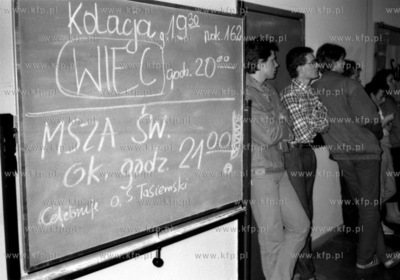 Kolacja g. 19³⁰ pok. 166
WIEC godz. 20⁰⁰
MSZA ŚW.
ok. godz. 21⁰⁰
Celebruje o. S. Tasiemski
www.kfp.pl